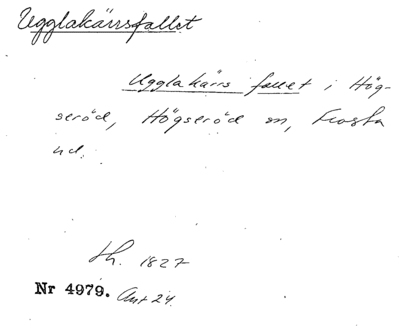 Ugglakärrsfallet
Ugglakärrs fallet i Hög-
seröd, Högseröd sn, Frosta
hd.
Lh. 1827
Nr 4979. Ant 24.